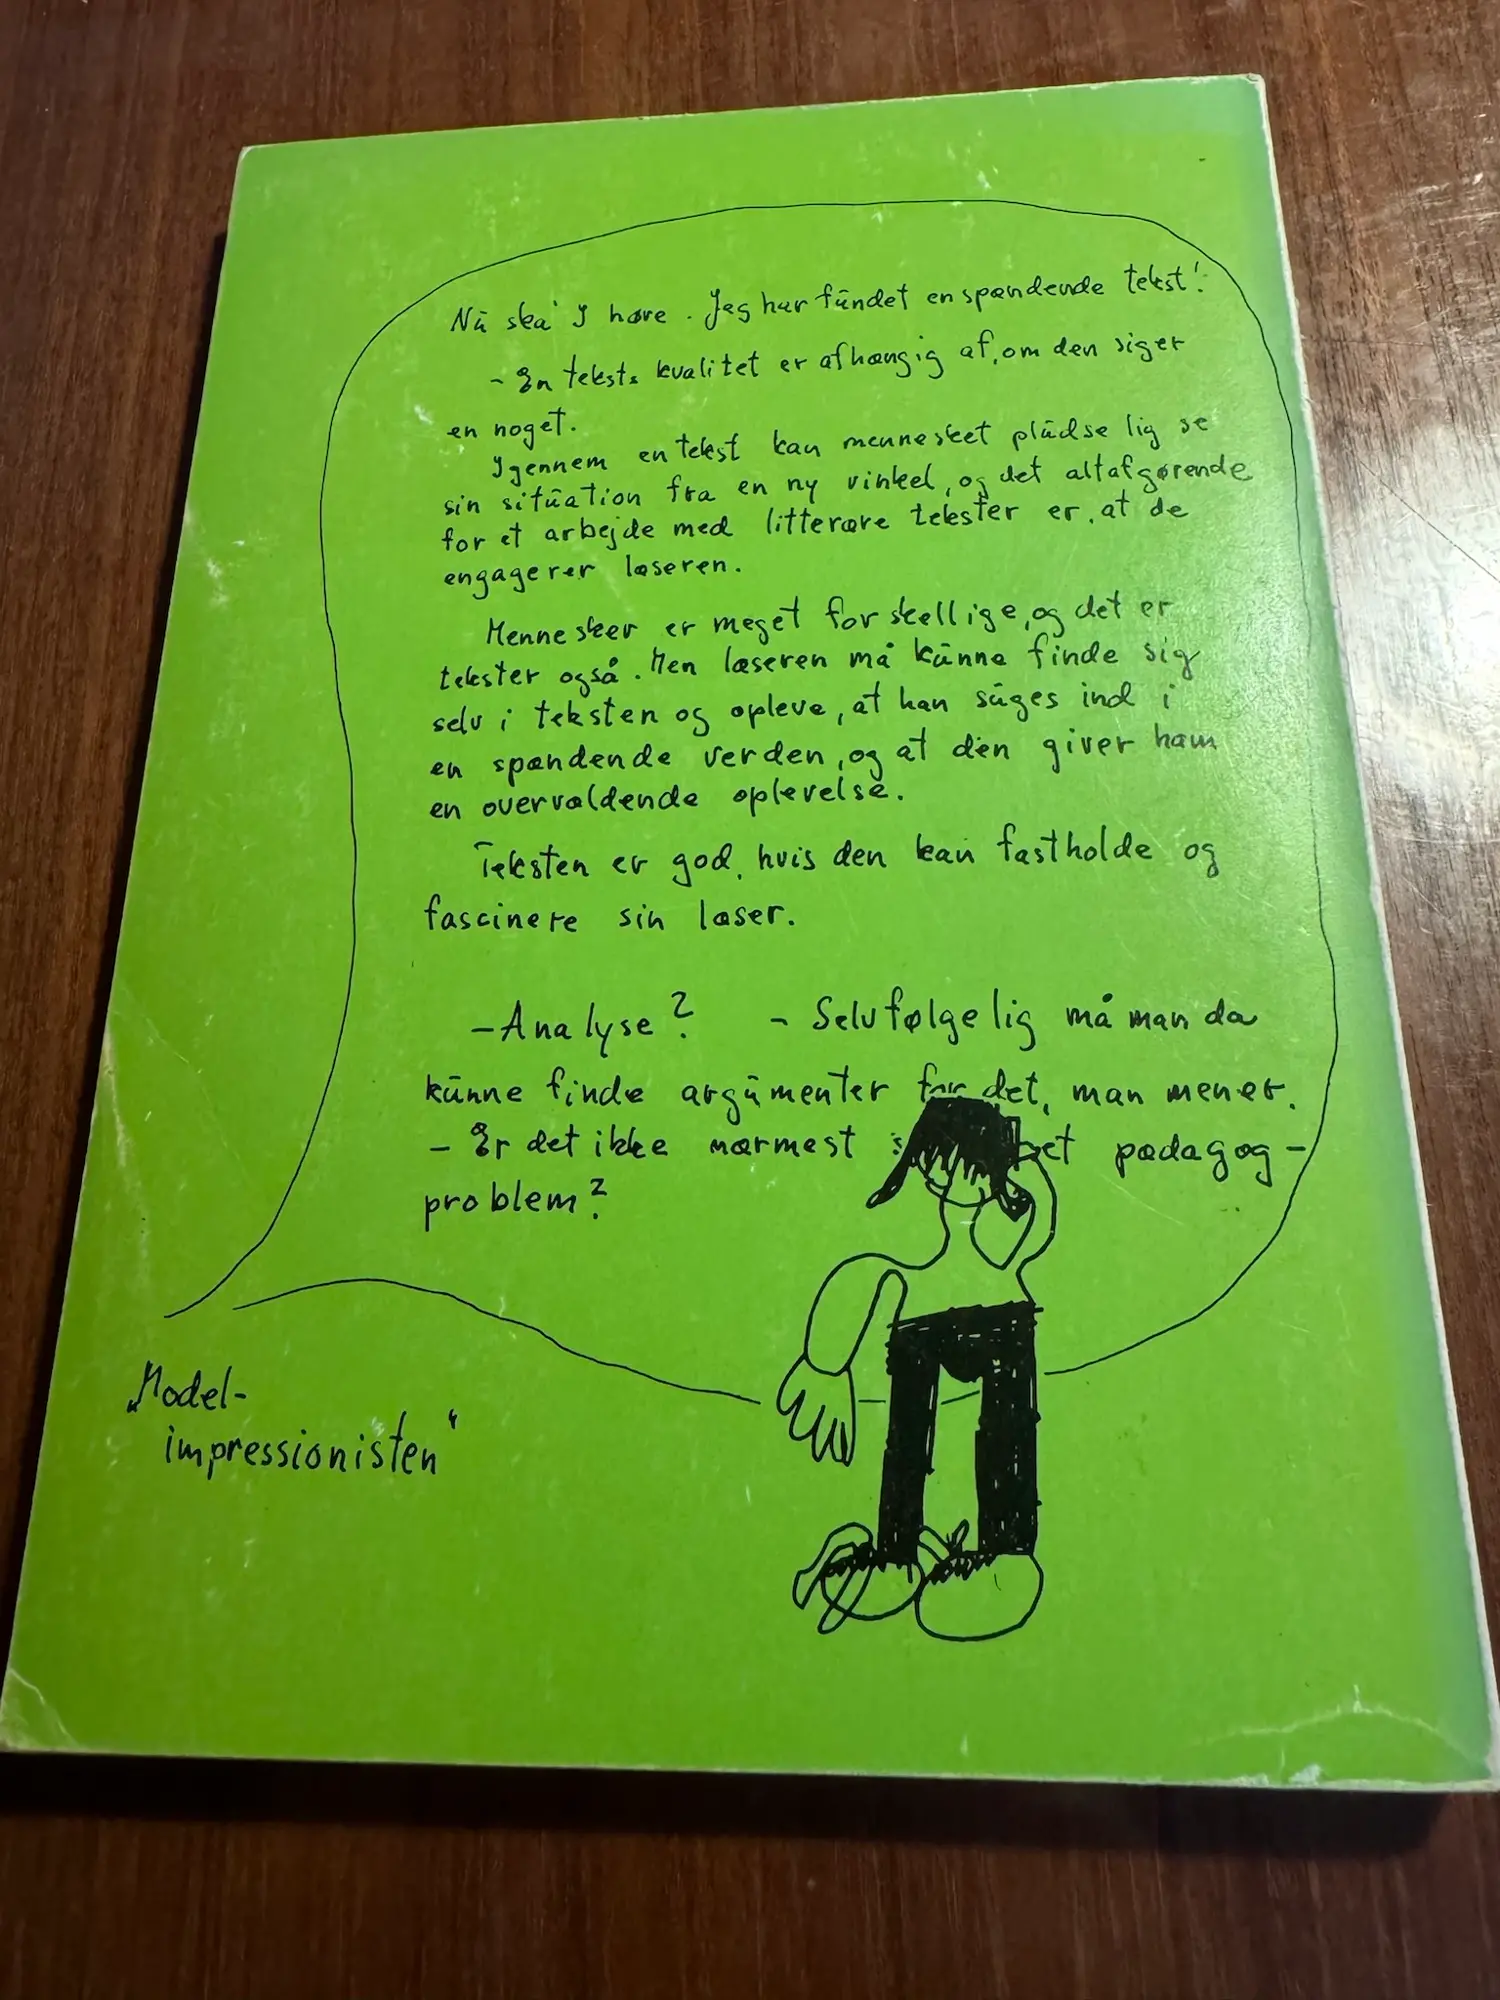 Nu ska' I høre. Jeg har fundet en spændende tekst!
- En teksts kvalitet er afhængig af, om den siger
en noget.
Igennem en tekst kan mennesket pludselig se
sin situation fra en ny vinkel, og det altafgørende
for et arbejde med litterære tekster er, at de
engagerer læseren.
Mennesker er meget forskellige, og det er
tekster også. Men læseren må kunne finde sig
selv i teksten og opleve, at han suges ind i
en spændende verden, og at den giver ham
en overvældende oplevelse.
Teksten er god, hvis den kan fastholde og
fascinere sin læser.
- Analyse? - Selvfølgelig må man da
kunne finde argumenter for det, man mener.
- Er det ikke nærmest et pædagog-
problem?
„Model-
impressionisten"